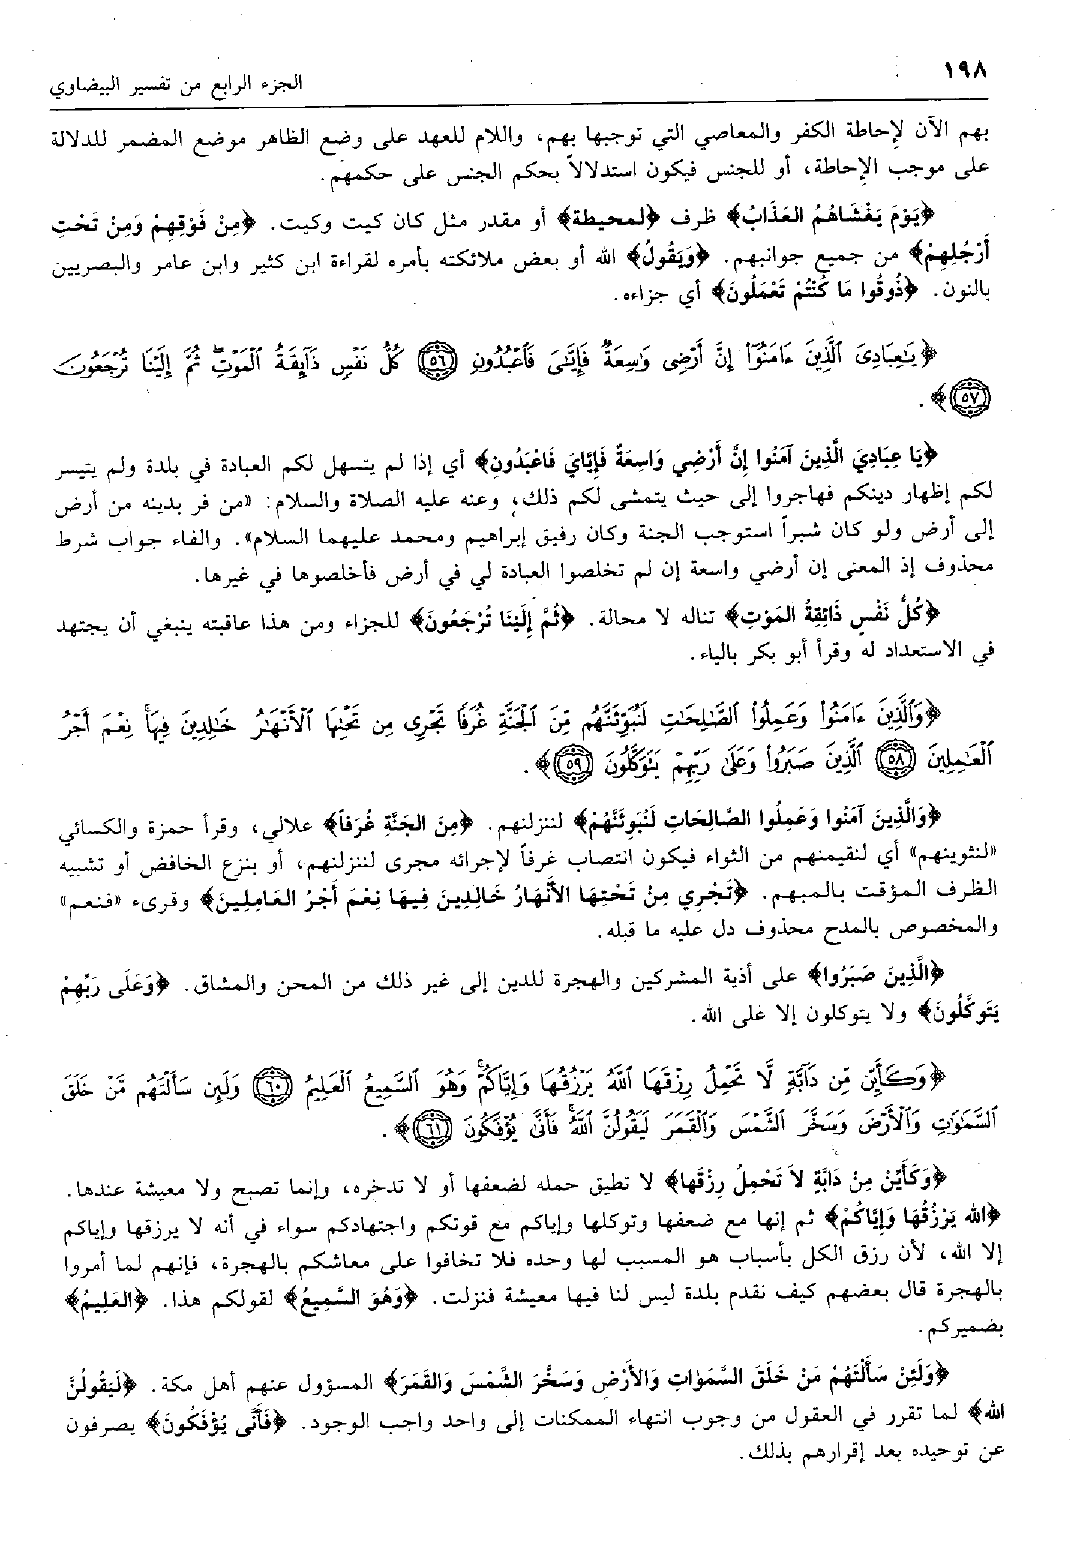 ١٩٨
الجزء الرابع من تفسير البيضاوي
بهم الآن لإحاطة الكفر والمعاصي التي توجبها بهم، واللام للعهد على وضع الظاهر موضع المضمر للدلالة
على موجب الإحاطة، أو للجنس فيكون استدلالاً بحكم الجنس على حكمهم.
﴿يَوْمَ يَغْشَاهُمُ العَذَابُ﴾ ظرف ﴿لمحيطة﴾ أو مقدر مثل كان كيت وكيت. ﴿مِنْ فَوْقِهِمْ وَمِنْ تَحْتِ
أَرْجُلِهِمْ﴾ من جميع جوانبهم. ﴿وَيَقُولُ﴾ الله أو بعض ملائكته بأمره لقراءة ابن كثير وابن عامر والبصريين
بالنون. ﴿ذُوقُوا مَا كُنْتُمْ تَعْمَلُونَ﴾ أي جزاءه.
﴿يَٰعِبَادِيَ ٱلَّذِينَ ءَامَنُوٓا۟ إِنَّ أَرْضِى وَٰسِعَةٌ فَإِيَّٰىَ فَٱعْبُدُونِ ۝٥٦ كُلُّ نَفْسٍ ذَآئِقَةُ ٱلْمَوْتِ ۖ ثُمَّ إِلَيْنَا تُرْجَعُونَ
۝٥٧﴾.
﴿يَا عِبَادِيَ الَّذِينَ آمَنُوا إِنَّ أَرْضِي وَاسِعَةٌ فَإِيَّايَ فَاعْبُدُونِ﴾ أي إذا لم يتسهل لكم العبادة في بلدة ولم يتيسر
لكم إظهار دينكم فهاجروا إلى حيث يتمشى لكم ذلك، وعنه عليه الصلاة والسلام: «من فر بدينه من أرض
إلى أرض ولو كان شبراً استوجب الجنة وكان رفيق إبراهيم ومحمد عليهما السلام». والفاء جواب شرط
محذوف إذ المعنى إن أرضي واسعة إن لم تخلصوا العبادة لي في أرض فأخلصوها في غيرها.
﴿كُلُّ نَفْسٍ ذَائِقَةُ المَوْتِ﴾ تناله لا محالة. ﴿ثُمَّ إِلَيْنَا تُرْجَعُونَ﴾ للجزاء ومن هذا عاقبته ينبغي أن يجتهد
في الاستعداد له وقرأ أبو بكر بالياء.
﴿وَٱلَّذِينَ ءَامَنُوا۟ وَعَمِلُوا۟ ٱلصَّٰلِحَٰتِ لَنُبَوِّئَنَّهُم مِّنَ ٱلْجَنَّةِ غُرَفًا تَجْرِى مِن تَحْتِهَا ٱلْأَنْهَٰرُ خَٰلِدِينَ فِيهَا ۚ نِعْمَ أَجْرُ
ٱلْعَٰمِلِينَ ۝٥٨ ٱلَّذِينَ صَبَرُوا۟ وَعَلَىٰ رَبِّهِمْ يَتَوَكَّلُونَ ۝٥٩﴾.
﴿وَالَّذِينَ آمَنُوا وَعَمِلُوا الصَّالِحَاتِ لَنُبَوِئَنَّهُمْ﴾ لننزلنهم. ﴿مِنَ الجَنَّةِ غُرَفاً﴾ علالي، وقرأ حمزة والكسائي
«لنثوينهم» أي لنقيمنهم من الثواء فيكون انتصاب غرفاً لإجرائه مجرى لننزلنهم، أو بنزع الخافض أو تشبيه
الظرف المؤقت بالمبهم. ﴿تَجْرِي مِنْ تَحْتِهَا الأَنْهَارُ خَالِدِينَ فِيهَا نِعْمَ أَجْرُ العَامِلِينَ﴾ وقرىء «فنعم»
والمخصوص بالمدح محذوف دل عليه ما قبله.
﴿الَّذِينَ صَبَرُوا﴾ على أذية المشركين والهجرة للدين إلى غير ذلك من المحن والمشاق. ﴿وَعَلَى رَبِّهِمْ
يَتَوَكَّلُونَ﴾ ولا يتوكلون إلا على الله.
﴿وَكَأَيِّن مِّن دَآبَّةٍ لَّا تَحْمِلُ رِزْقَهَا ٱللَّهُ يَرْزُقُهَا وَإِيَّاكُمْ ۚ وَهُوَ ٱلسَّمِيعُ ٱلْعَلِيمُ ۝٦٠ وَلَئِن سَأَلْتَهُم مَّنْ خَلَقَ
ٱلسَّمَٰوَٰتِ وَٱلْأَرْضَ وَسَخَّرَ ٱلشَّمْسَ وَٱلْقَمَرَ لَيَقُولُنَّ ٱللَّهُ ۖ فَأَنَّىٰ يُؤْفَكُونَ ۝٦١﴾.
﴿وَكَأَيِّنْ مِنْ دَابَّةٍ لاَ تَحْمِلُ رِزْقَهَا﴾ لا تطيق حمله لضعفها أو لا تدخره، وإنما تصبح ولا معيشة عندها.
﴿الله يَرْزُقُهَا وَإِيَّاكُمْ﴾ ثم إنها مع ضعفها وتوكلها وإياكم مع قوتكم واجتهادكم سواء في أنه لا يرزقها وإياكم
إلا الله، لأن رزق الكل بأسباب هو المسبب لها وحده فلا تخافوا على معاشكم بالهجرة، فإنهم لما أمروا
بالهجرة قال بعضهم كيف نقدم بلدة ليس لنا فيها معيشة فنزلت. ﴿وَهُوَ السَّمِيعُ﴾ لقولكم هذا. ﴿العَلِيمُ﴾
بضميركم.
﴿وَلَئِنْ سَأَلْتَهُمْ مَنْ خَلَقَ السَّمَوَاتِ وَالأَرْضِ وَسَخَّرَ الشَّمْسَ وَالقَمَرَ﴾ المسؤول عنهم أهل مكة. ﴿لَيَقُولُنَّ
الله﴾ لما تقرر في العقول من وجوب انتهاء الممكنات إلى واحد واجب الوجود. ﴿فَأَنَّى يُؤْفَكُونَ﴾ يصرفون
عن توحيده بعد إقرارهم بذلك.